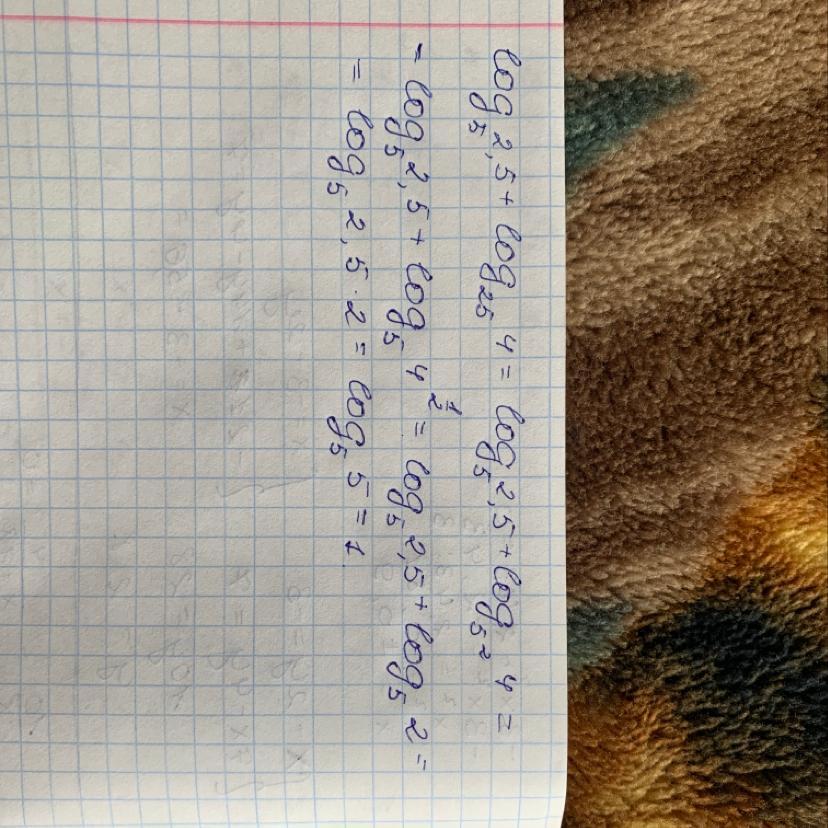 log₅ 2,5 + log₂₅ 4 = log₅ 2,5 + log₅² 4 =
= log₅ 2,5 + log₅ 4^(1/2) = log₅ 2,5 + log₅ 2 =
= log₅ 2,5 · 2 = log₅ 5 = 1.